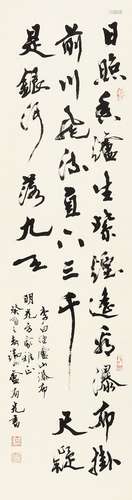 日照香爐生紫煙遙看瀑布掛
前川飛流直下三千尺疑
是銀河落九天
李白望廬山瀑布
明光方家雅正
癸酉之盧有光書